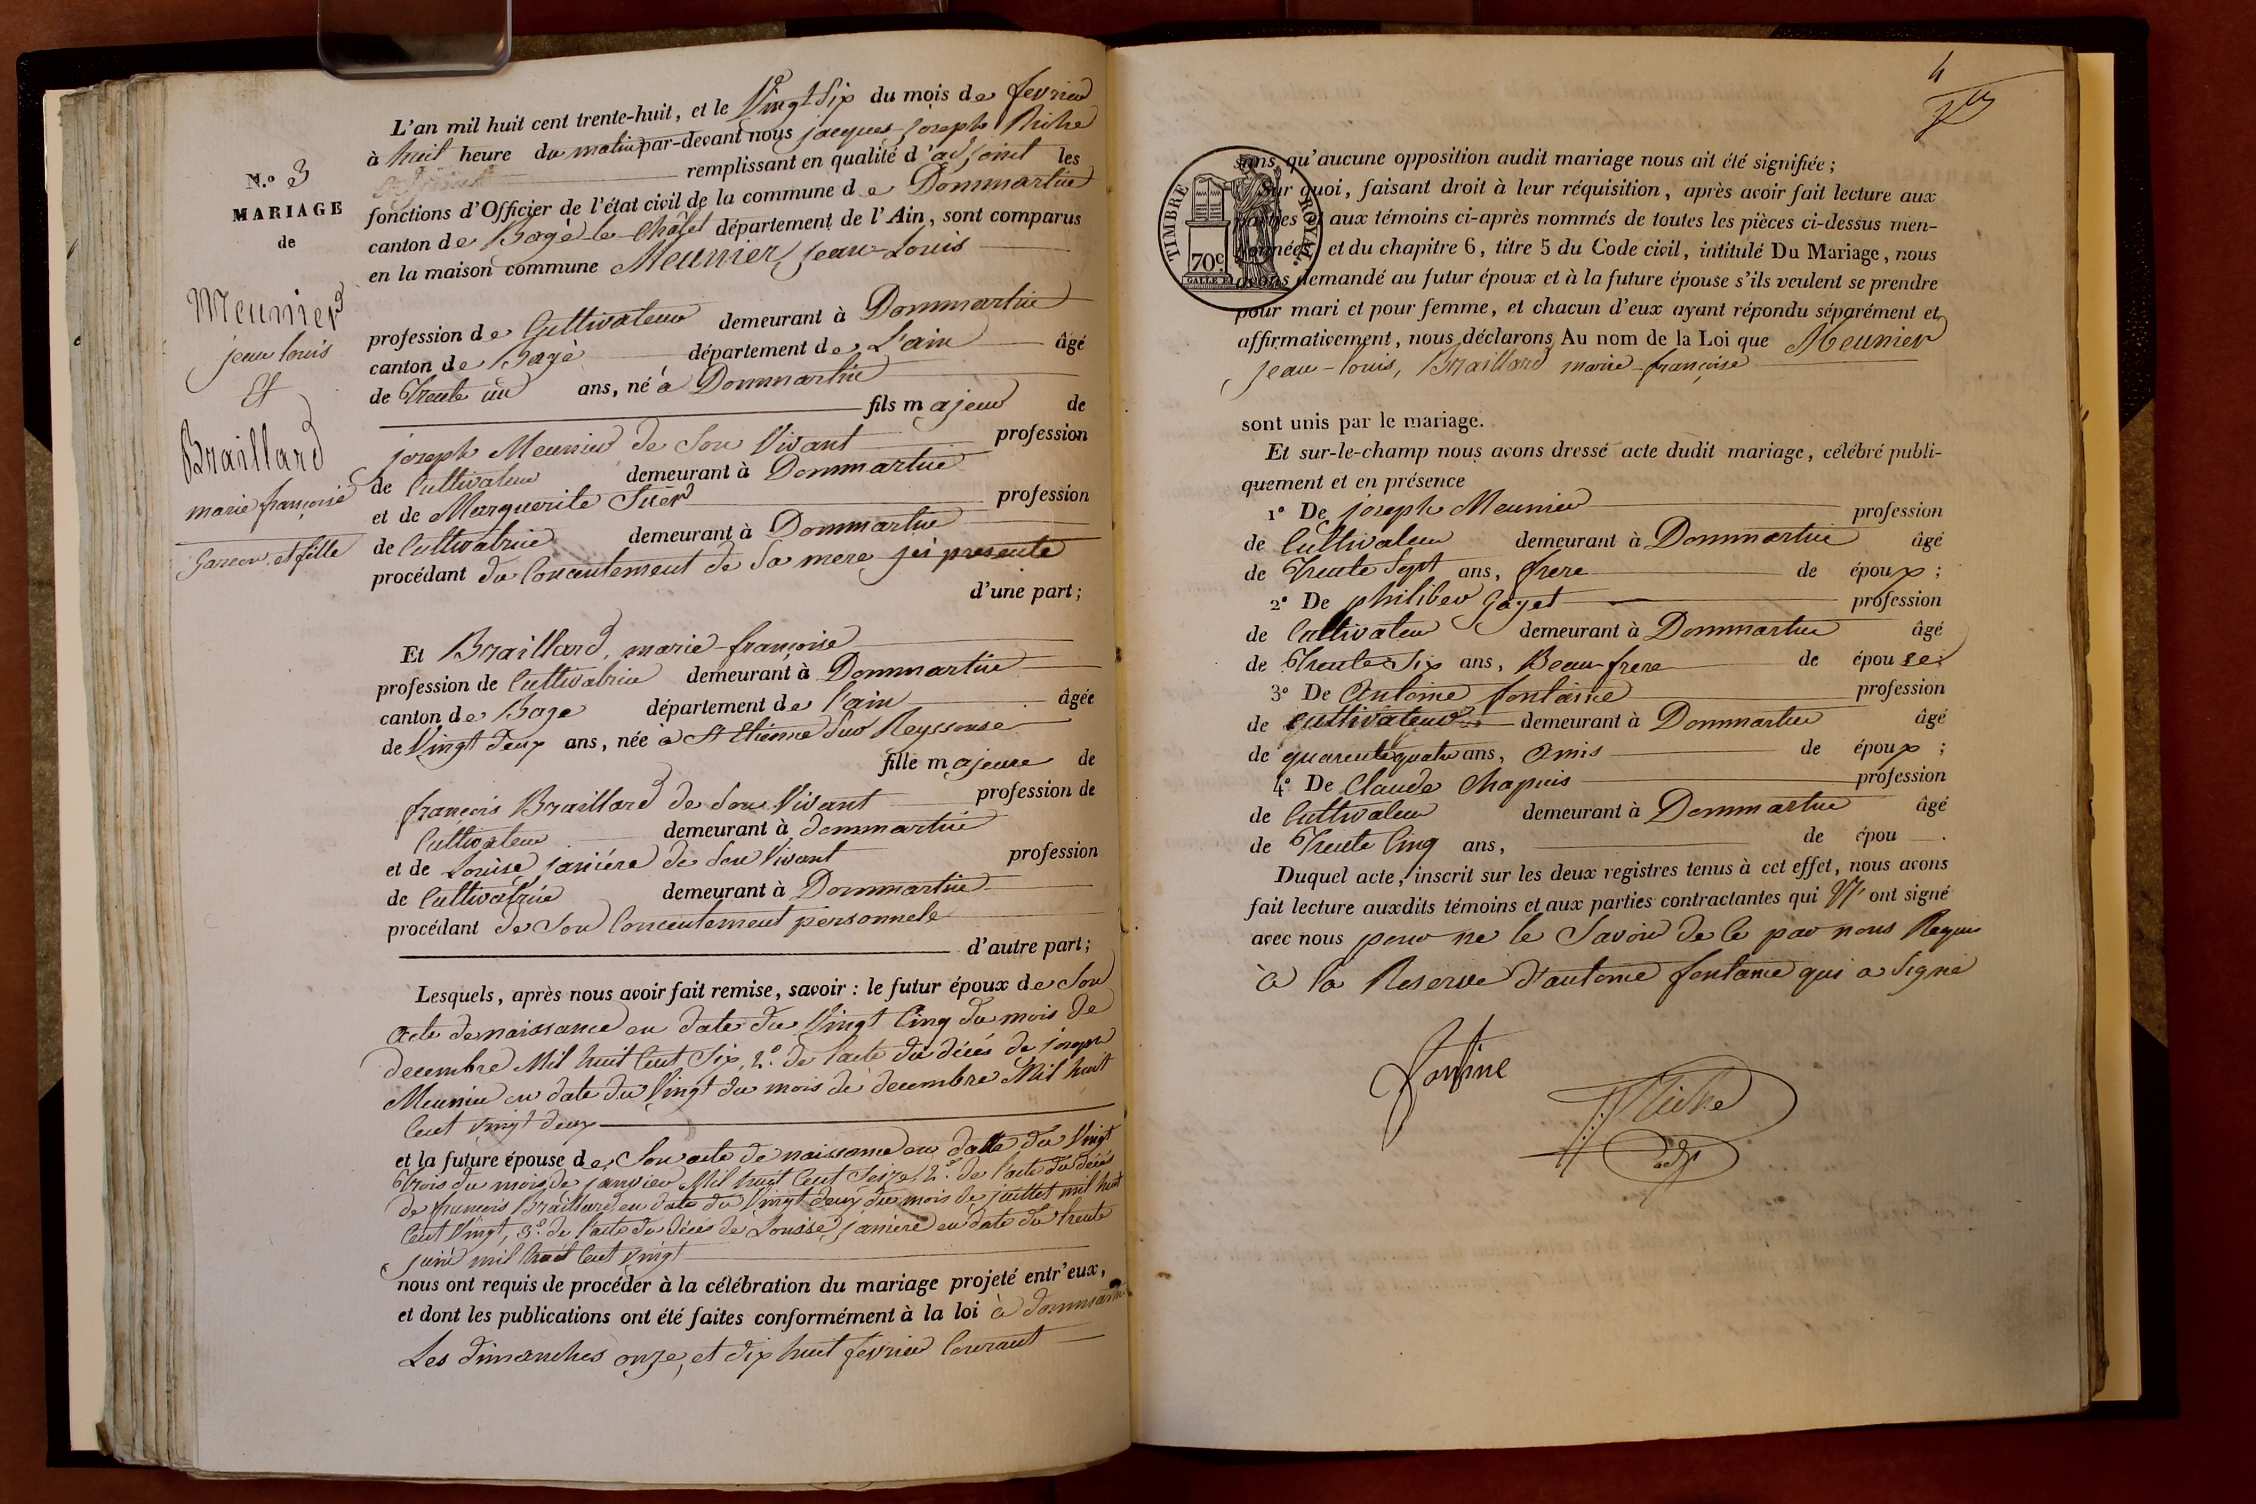 N.o 3
MARIAGE
de
Meunier
jean louis
Et
Braillard
marie françoise
garcon et fille
L'an mil huit cent trente-huit, et le Vingt Six du mois de fevrier
à huit heure du matin par-devant nous jacques joseph Riche
adjoint remplissant en qualité d'adjoint les
fonctions d'Officier de l'état civil de la commune de Dommartin
canton de Bagé-le-Châtel département de l'Ain, sont comparus
en la maison commune Meunier jean-Louis
profession de Cultivateur demeurant à Dommartin
canton de Bagé département de L'ain âgé
de Trente un ans, né à Dommartin
fils majeur de
joseph Meunier de Son Vivant profession
de Cultivateur demeurant à Dommartin
et de Marguerite profession
de Cultivatrice demeurant à Dommartin
procédant du Concentement de Sa mere jci presente
d'une part;
Et Braillard, marie-françoise
profession de Cultivatrice demeurant à Dommartin
canton de Bage département de l'ain âgée
de Vingt deux ans, née a St Etienne Sur Reyssouse
fille majeure de
françois Braillard de Son Vivant profession de
Cultivateur demeurant à dommartin
et de Louise janiére de Son Vivant profession
de Cultivatrice demeurant à Dommartin
procédant de Son Concentement personnele
d'autre part;
Lesquels, après nous avoir fait remise, savoir : le futur époux de Son
acte de naissance en date du Vingt Cinq du mois de
decembre Mil huit Cent Six, 2.o de l'acte du décés de joseph
Meunier en date du Vingt du mois de decembre Mil huit
Cent vingt deux
et la future épouse de Son acte de naissance en date du Vingt
Trois du mois de janvier Mil huit Cent Seize, 2.o de l'acte du décés
de francois Braillard en date du Vingt deux du mois de juillet mil huit
Cent Vingt, 3.o de l'acte du déces de Louisse janiere en date du trente
juin mil huit Cent vingt
nous ont requis de procéder à la célébration du mariage projeté entr'eux,
et dont les publications ont été faites conformément à la loi à dommartin
Les dimanches onze, et dix huit fevrier Courant
4
TIMBRE ROYAL.
70c
sans qu'aucune opposition audit mariage nous ait été signifiée;
Sur quoi, faisant droit à leur réquisition, après avoir fait lecture aux
parties et aux témoins ci-après nommés de toutes les pièces ci-dessus men-
tionnées, et du chapitre 6, titre 5 du Code civil, intitulé Du Mariage, nous
avons demandé au futur époux et à la future épouse s'ils veulent se prendre
pour mari et pour femme, et chacun d'eux ayant répondu séparément et
affirmativement, nous déclarons Au nom de la Loi que Meunier
jean-louis, Braillard marie-françoise
sont unis par le mariage.
Et sur-le-champ nous avons dressé acte dudit mariage, célébré publi-
quement et en présence
1o De joseph Meunier profession
de Cultivateur demeurant à Dommartin âgé
de Trente Sept ans, frere de époux;
2o De philiber Gayet profession
de Cultivateur demeurant à Dommartin âgé
de Trente Six ans, Beau frere de épouse;
3o De Antoine fontaine profession
de cultivateur demeurant à Dommartin âgé
de quarente quatre ans, Amis de époux;
4o De Claude Chapuis profession
de Cultivateur demeurant à Dommartin âgé
de Trente Cinq ans, de épou .
Duquel acte, inscrit sur les deux registres tenus à cet effet, nous avons
fait lecture auxdits témoins et aux parties contractantes qui N' ont signé
avec nous pour ne le Savoir de ce par nous Requis
à la Reserve d'antoine fontaine qui a Signé
fontine
Riche
adj